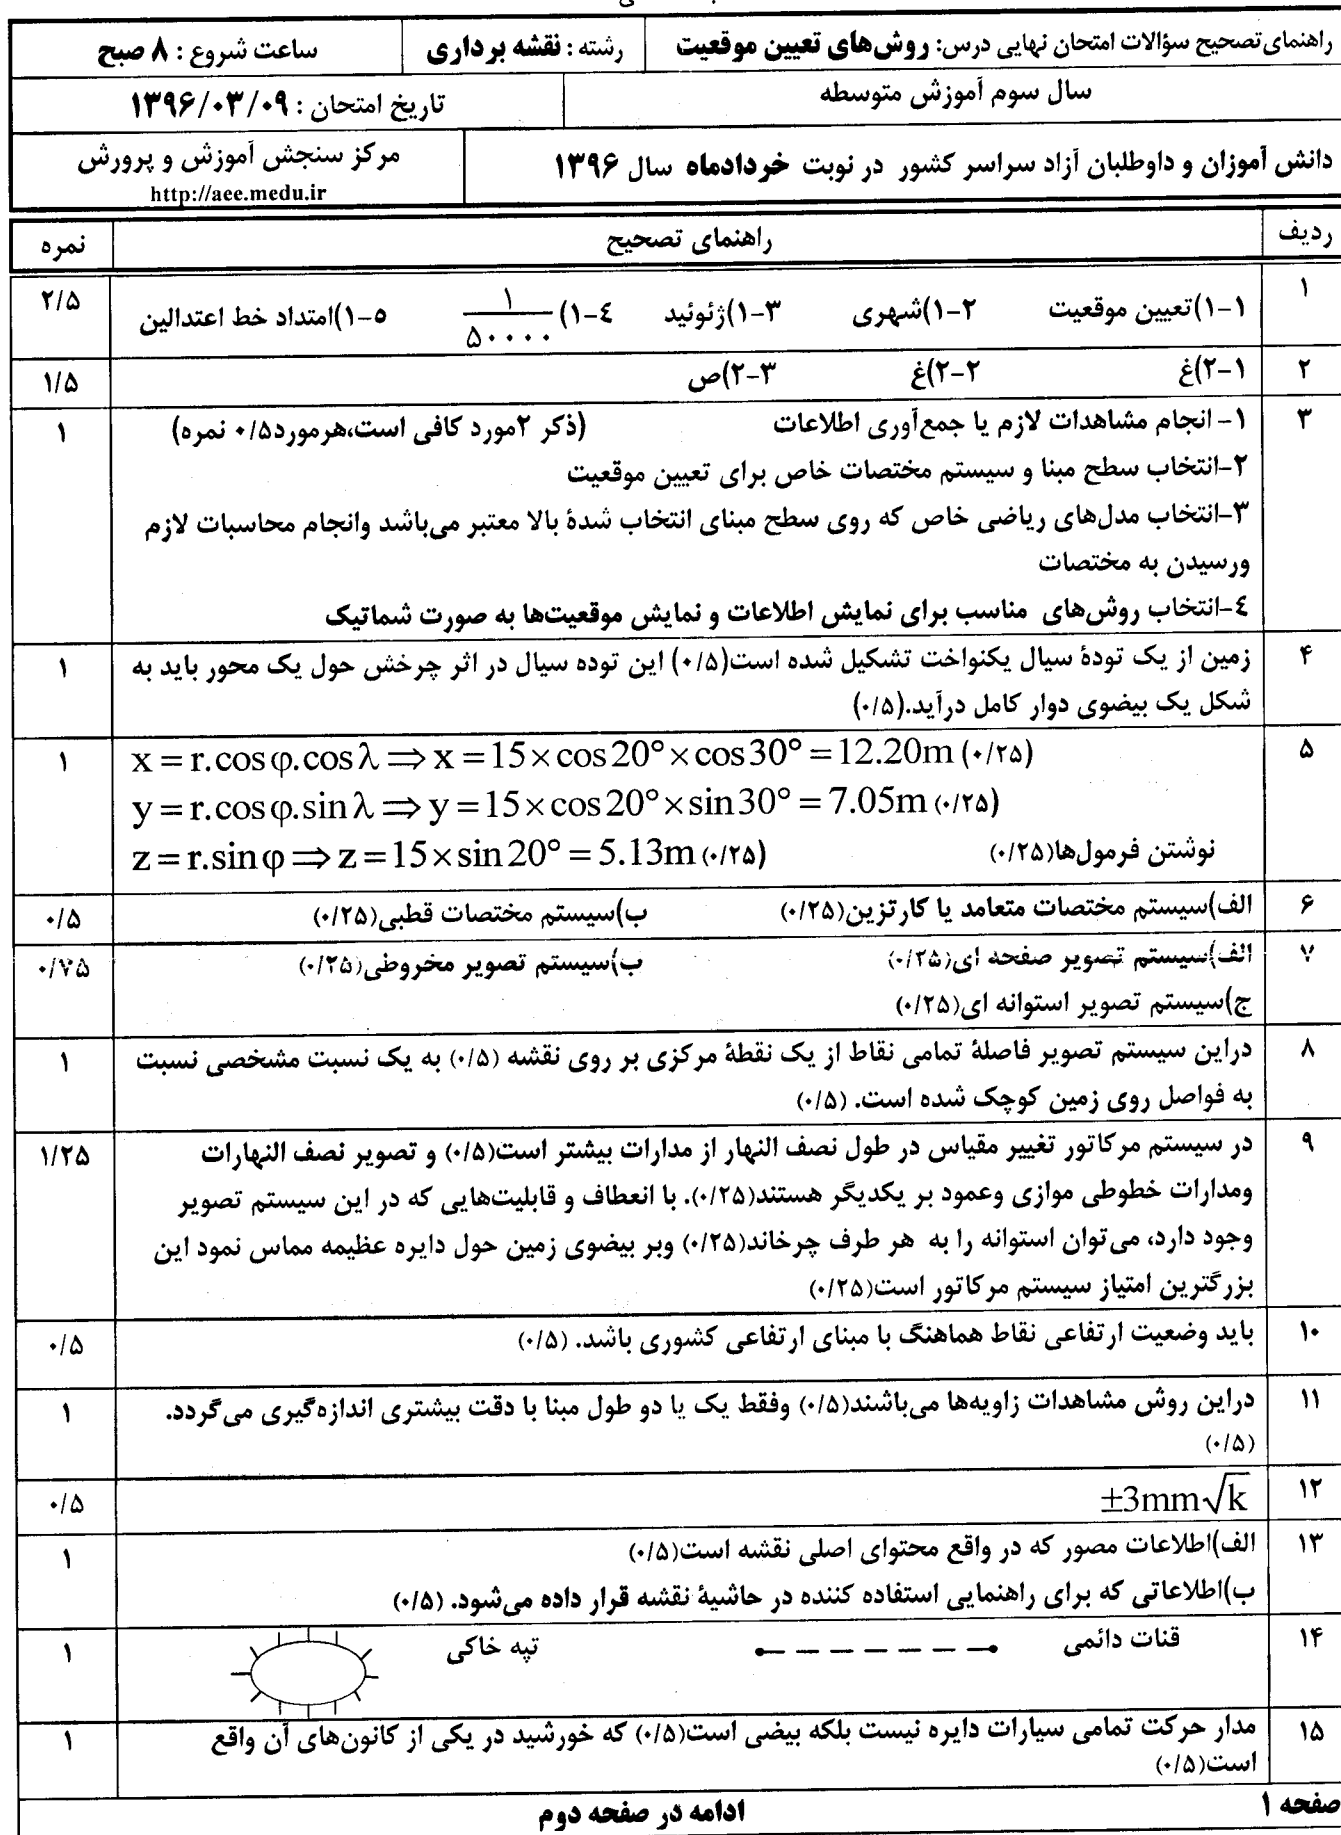 راهنمای تصحیح سؤالات امتحان نهایی درس: روش‌های تعیین موقعیت رشته : نقشه برداری ساعت شروع : ۸ صبح
سال سوم آموزش متوسطه تاریخ امتحان : ۱۳۹۶/۰۳/۰۹
دانش آموزان و داوطلبان آزاد سراسر کشور در نوبت خردادماه سال ۱۳۹۶ مرکز سنجش آموزش و پرورش
http://aee.medu.ir
ردیف راهنمای تصحیح نمره
۱ ۱-۱)تعیین موقعیت ۱-۲)شهری ۱-۳)ژئوئید ۱-٤) ۱/۵۰۰۰۰ ۱-۵)امتداد خط اعتدالین ۲/۵
۲ ۲-۱)غ ۲-۲)غ ۲-۳)ص ۱/۵
۳ ۱- انجام مشاهدات لازم یا جمع‌آوری اطلاعات (ذکر ۲مورد کافی است،هرمورد۰/۵ نمره) ۱
۲-انتخاب سطح مبنا و سیستم مختصات خاص برای تعیین موقعیت
۳-انتخاب مدل‌های ریاضی خاص که روی سطح مبنای انتخاب شدهٔ بالا معتبر می‌باشد وانجام محاسبات لازم
ورسیدن به مختصات
٤-انتخاب روش‌های مناسب برای نمایش اطلاعات و نمایش موقعیت‌ها به صورت شماتیک
۴ زمین از یک تودهٔ سیال یکنواخت تشکیل شده است(۰/۵) این توده سیال در اثر چرخش حول یک محور باید به ۱
شکل یک بیضوی دوار کامل درآید.(۰/۵)
۵ x = r.cos φ.cos λ ⟹ x = 15 × cos 20° × cos 30° = 12.20m (۰/۲۵) ۱
y = r.cos φ.sin λ ⟹ y = 15 × cos 20° × sin 30° = 7.05m (۰/۲۵)
z = r.sin φ ⟹ z = 15 × sin 20° = 5.13m (۰/۲۵) نوشتن فرمول‌ها(۰/۲۵)
۶ الف)سیستم مختصات متعامد یا کارتزین(۰/۲۵) ب)سیستم مختصات قطبی(۰/۲۵) ۰/۵
۷ الف)سیستم تصویر صفحه ای(۰/۲۵) ب)سیستم تصویر مخروطی(۰/۲۵) ۰/۷۵
ج)سیستم تصویر استوانه ای(۰/۲۵)
۸ دراین سیستم تصویر فاصلهٔ تمامی نقاط از یک نقطهٔ مرکزی بر روی نقشه (۰/۵) به یک نسبت مشخصی نسبت ۱
به فواصل روی زمین کوچک شده است. (۰/۵)
۹ در سیستم مرکاتور تغییر مقیاس در طول نصف النهار از مدارات بیشتر است(۰/۵) و تصویر نصف النهارات ۱/۲۵
ومدارات خطوطی موازی وعمود بر یکدیگر هستند(۰/۲۵). با انعطاف و قابلیت‌هایی که در این سیستم تصویر
وجود دارد، می‌توان استوانه را به هر طرف چرخاند(۰/۲۵) وبر بیضوی زمین حول دایره عظیمه مماس نمود این
بزرگترین امتیاز سیستم مرکاتور است(۰/۲۵)
۱۰ باید وضعیت ارتفاعی نقاط هماهنگ با مبنای ارتفاعی کشوری باشد. (۰/۵) ۰/۵
۱۱ دراین روش مشاهدات زاویه‌ها می‌باشند(۰/۵) وفقط یک یا دو طول مبنا با دقت بیشتری اندازه‌گیری می‌گردد. ۱
(۰/۵)
۱۲ ±3mm√k ۰/۵
۱۳ الف)اطلاعات مصور که در واقع محتوای اصلی نقشه است(۰/۵) ۱
ب)اطلاعاتی که برای راهنمایی استفاده کننده در حاشیهٔ نقشه قرار داده می‌شود. (۰/۵)
۱۴ قنات دائمی تپه خاکی ۱
۱۵ مدار حرکت تمامی سیارات دایره نیست بلکه بیضی است(۰/۵) که خورشید در یکی از کانون‌های آن واقع ۱
است(۰/۵)
صفحه ۱ ادامه در صفحه دوم